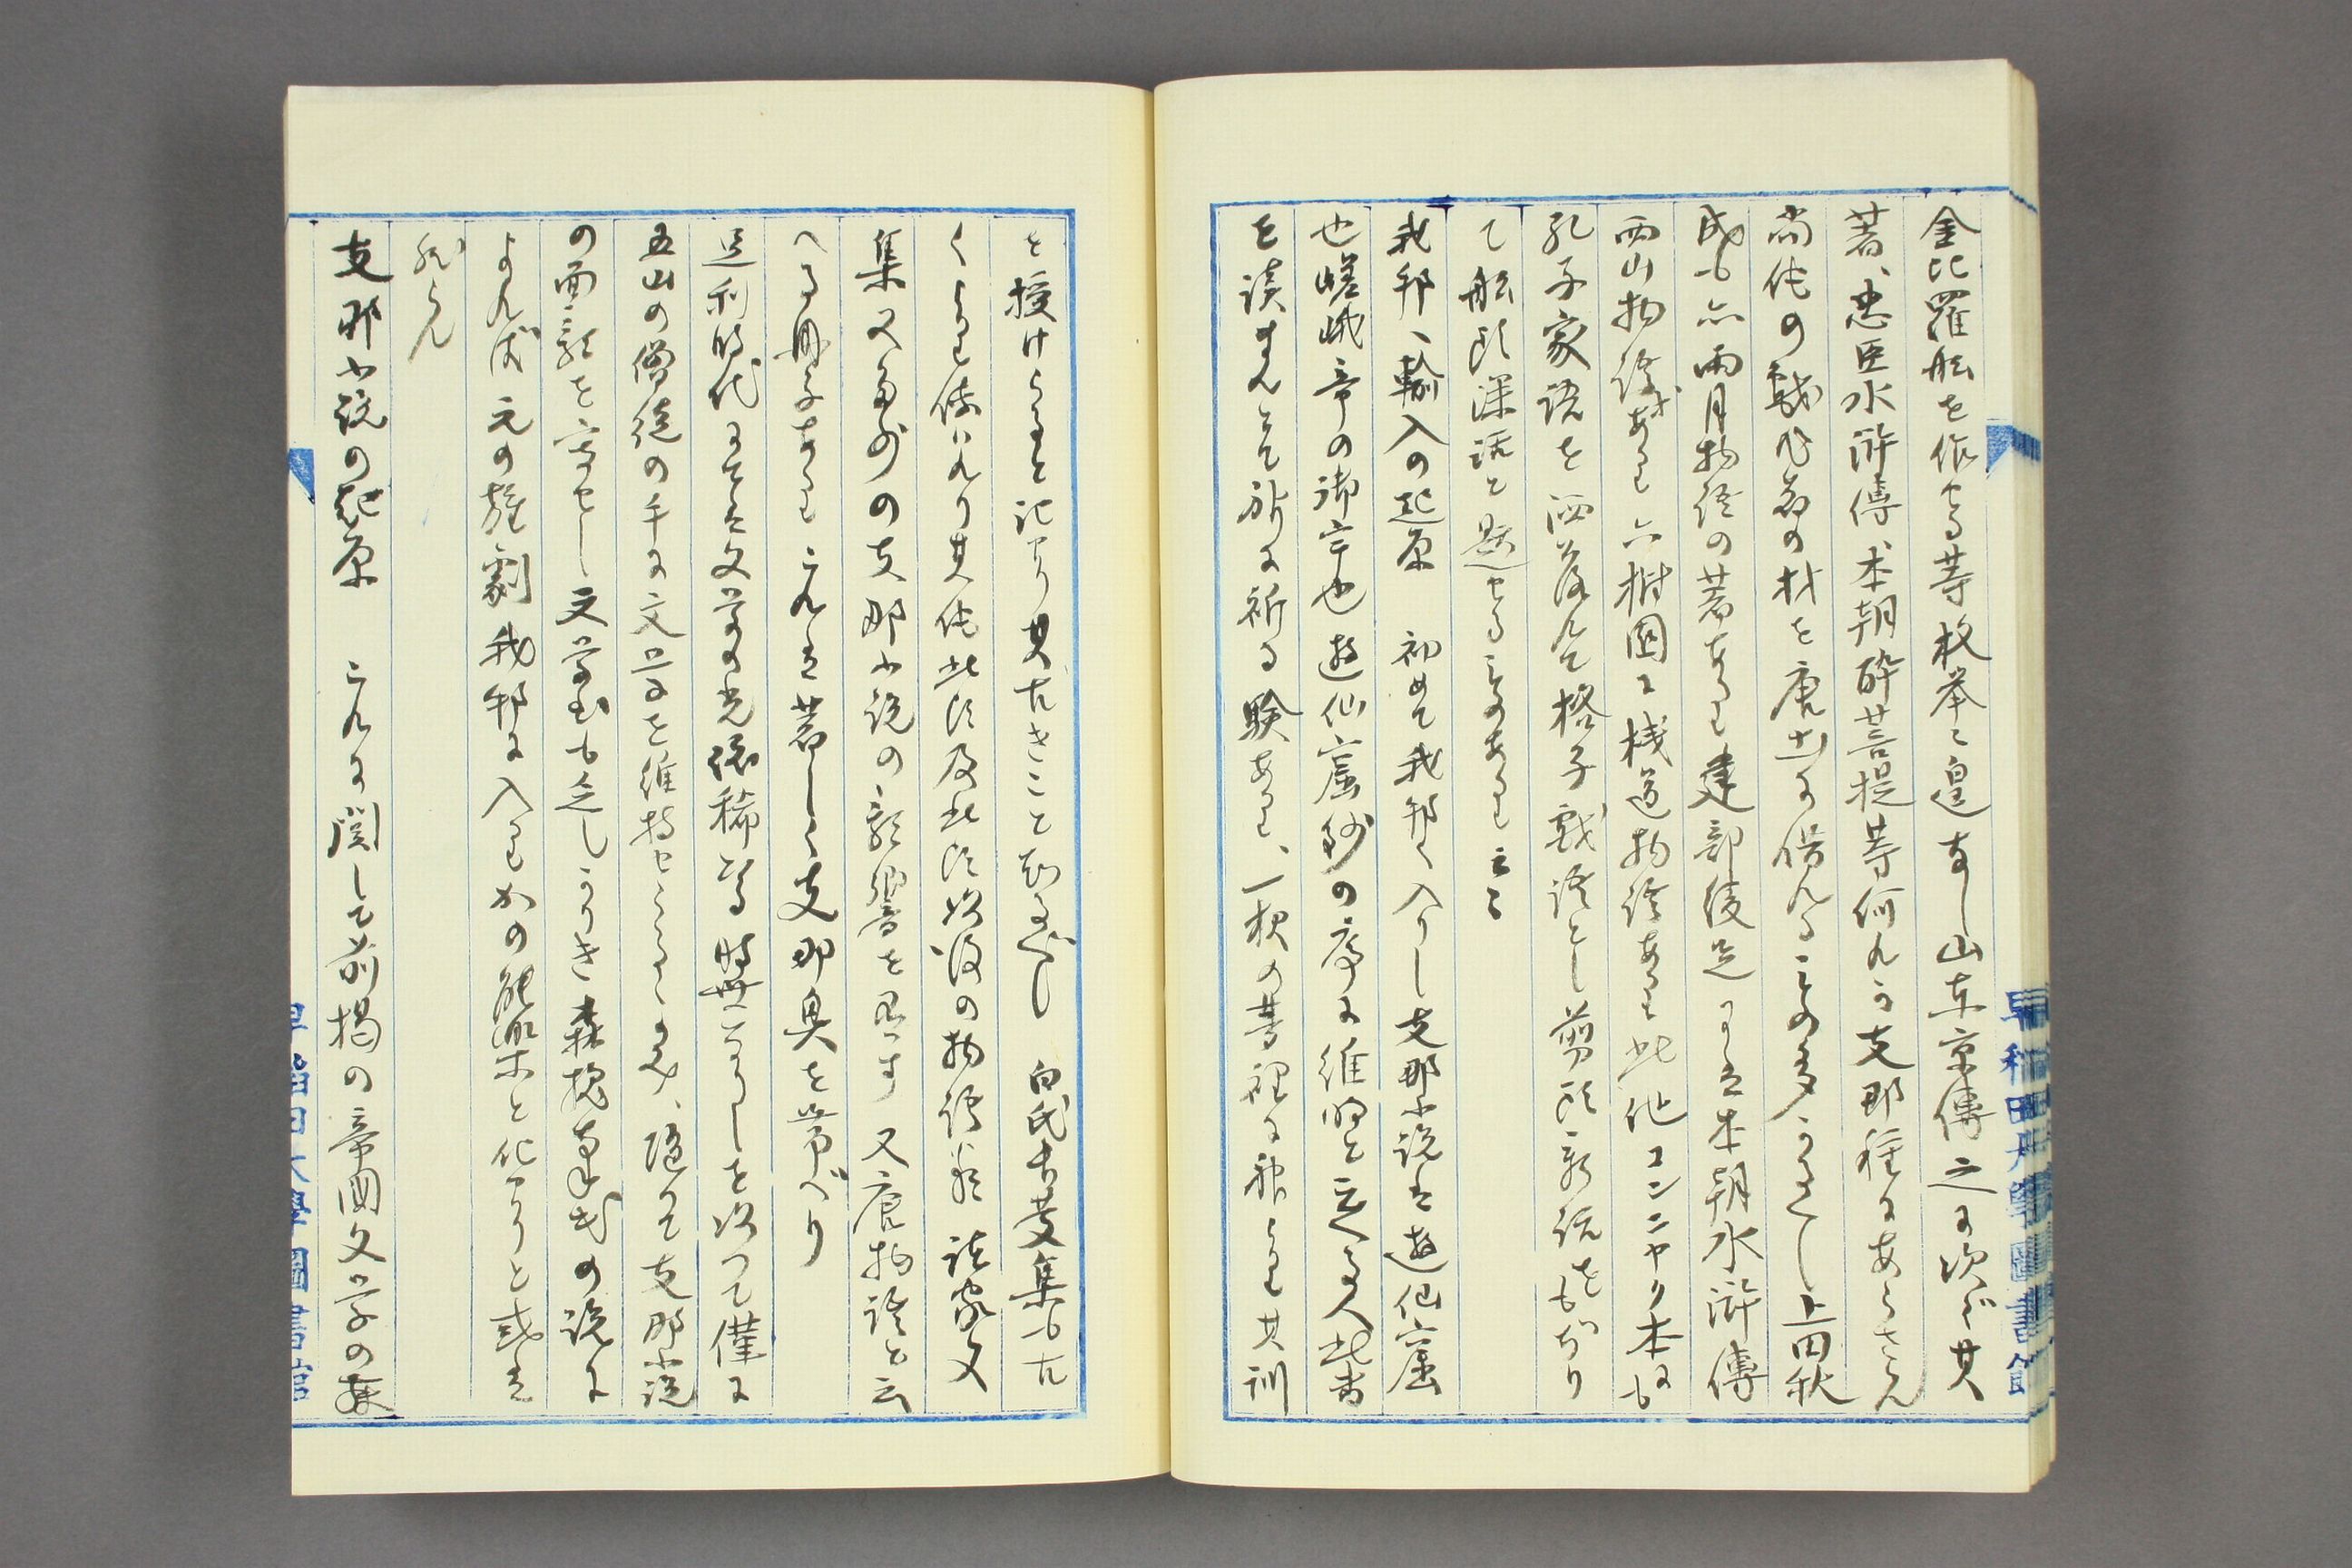 金比羅船を作せる等枚挙に遑なし山東京傳之に次で其
著、忠臣水滸傳、本朝酔菩提等何れか支那種にあらざらん
尚他の戯作者の材を唐土に借れることの多かるべし上田秋
成も亦雨月物語の著あり建部綾足には本朝水滸傳
西山物語あり六樹園に桟道物語あり此他コンニャク本にも
孔子家語を洒落て格子戯語とし剪灯新話をもぢり
て船頭深話と題せるものあり云々
我邦へ輸入の起原　初めて我邦へ入りし支那小説は遊仙窟
也嵯峨帝の御宇也遊仙窟鈔の序に維時と云へる人此書
を読まんとて所に祈る験あり、一夜の夢裡に神より其訓
を授けらると記せり其古きこと知るべし　白氏長慶集も古
くより傳はれり其他此頃及此頃以後の物語類諸家文
集又多少の支那小説の影響を見す　又唐物語と云
へる冊子あり これは著しく支那臭を帯べり
足利時代に至ては文学の光依稀たる時世なりしを以つて僅に
五山の僧徒の手に文学を維持せらるゝのみ、随て支那小説
の面影を寄せし文学書も乏しかりき 森槐南氏の説に
よれば 元の雑劇我邦に入りかの能楽と化せりと或は
然らん
支那小説の起原　これに関して前掲の帝国文学の
早稲田大學圖書館
早稲田大學圖書館